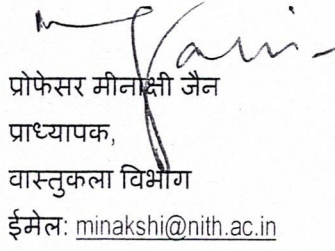 प्रोफेसर मीनाक्षी जैन
प्राध्यापक,
वास्तुकला विभाग
ईमेल: minakshi@nith.ac.in